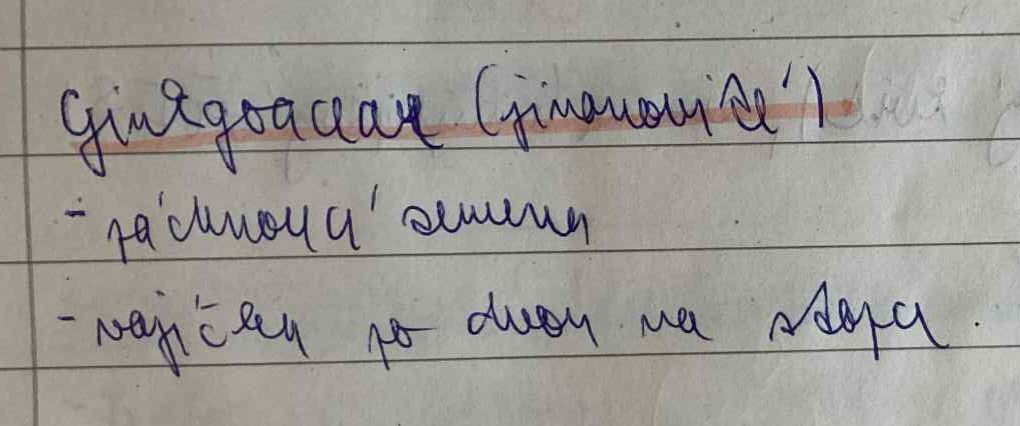 Ginkgoaceae (jinanovité)
- zápachová semena
- vajíčka po dvou na stopce